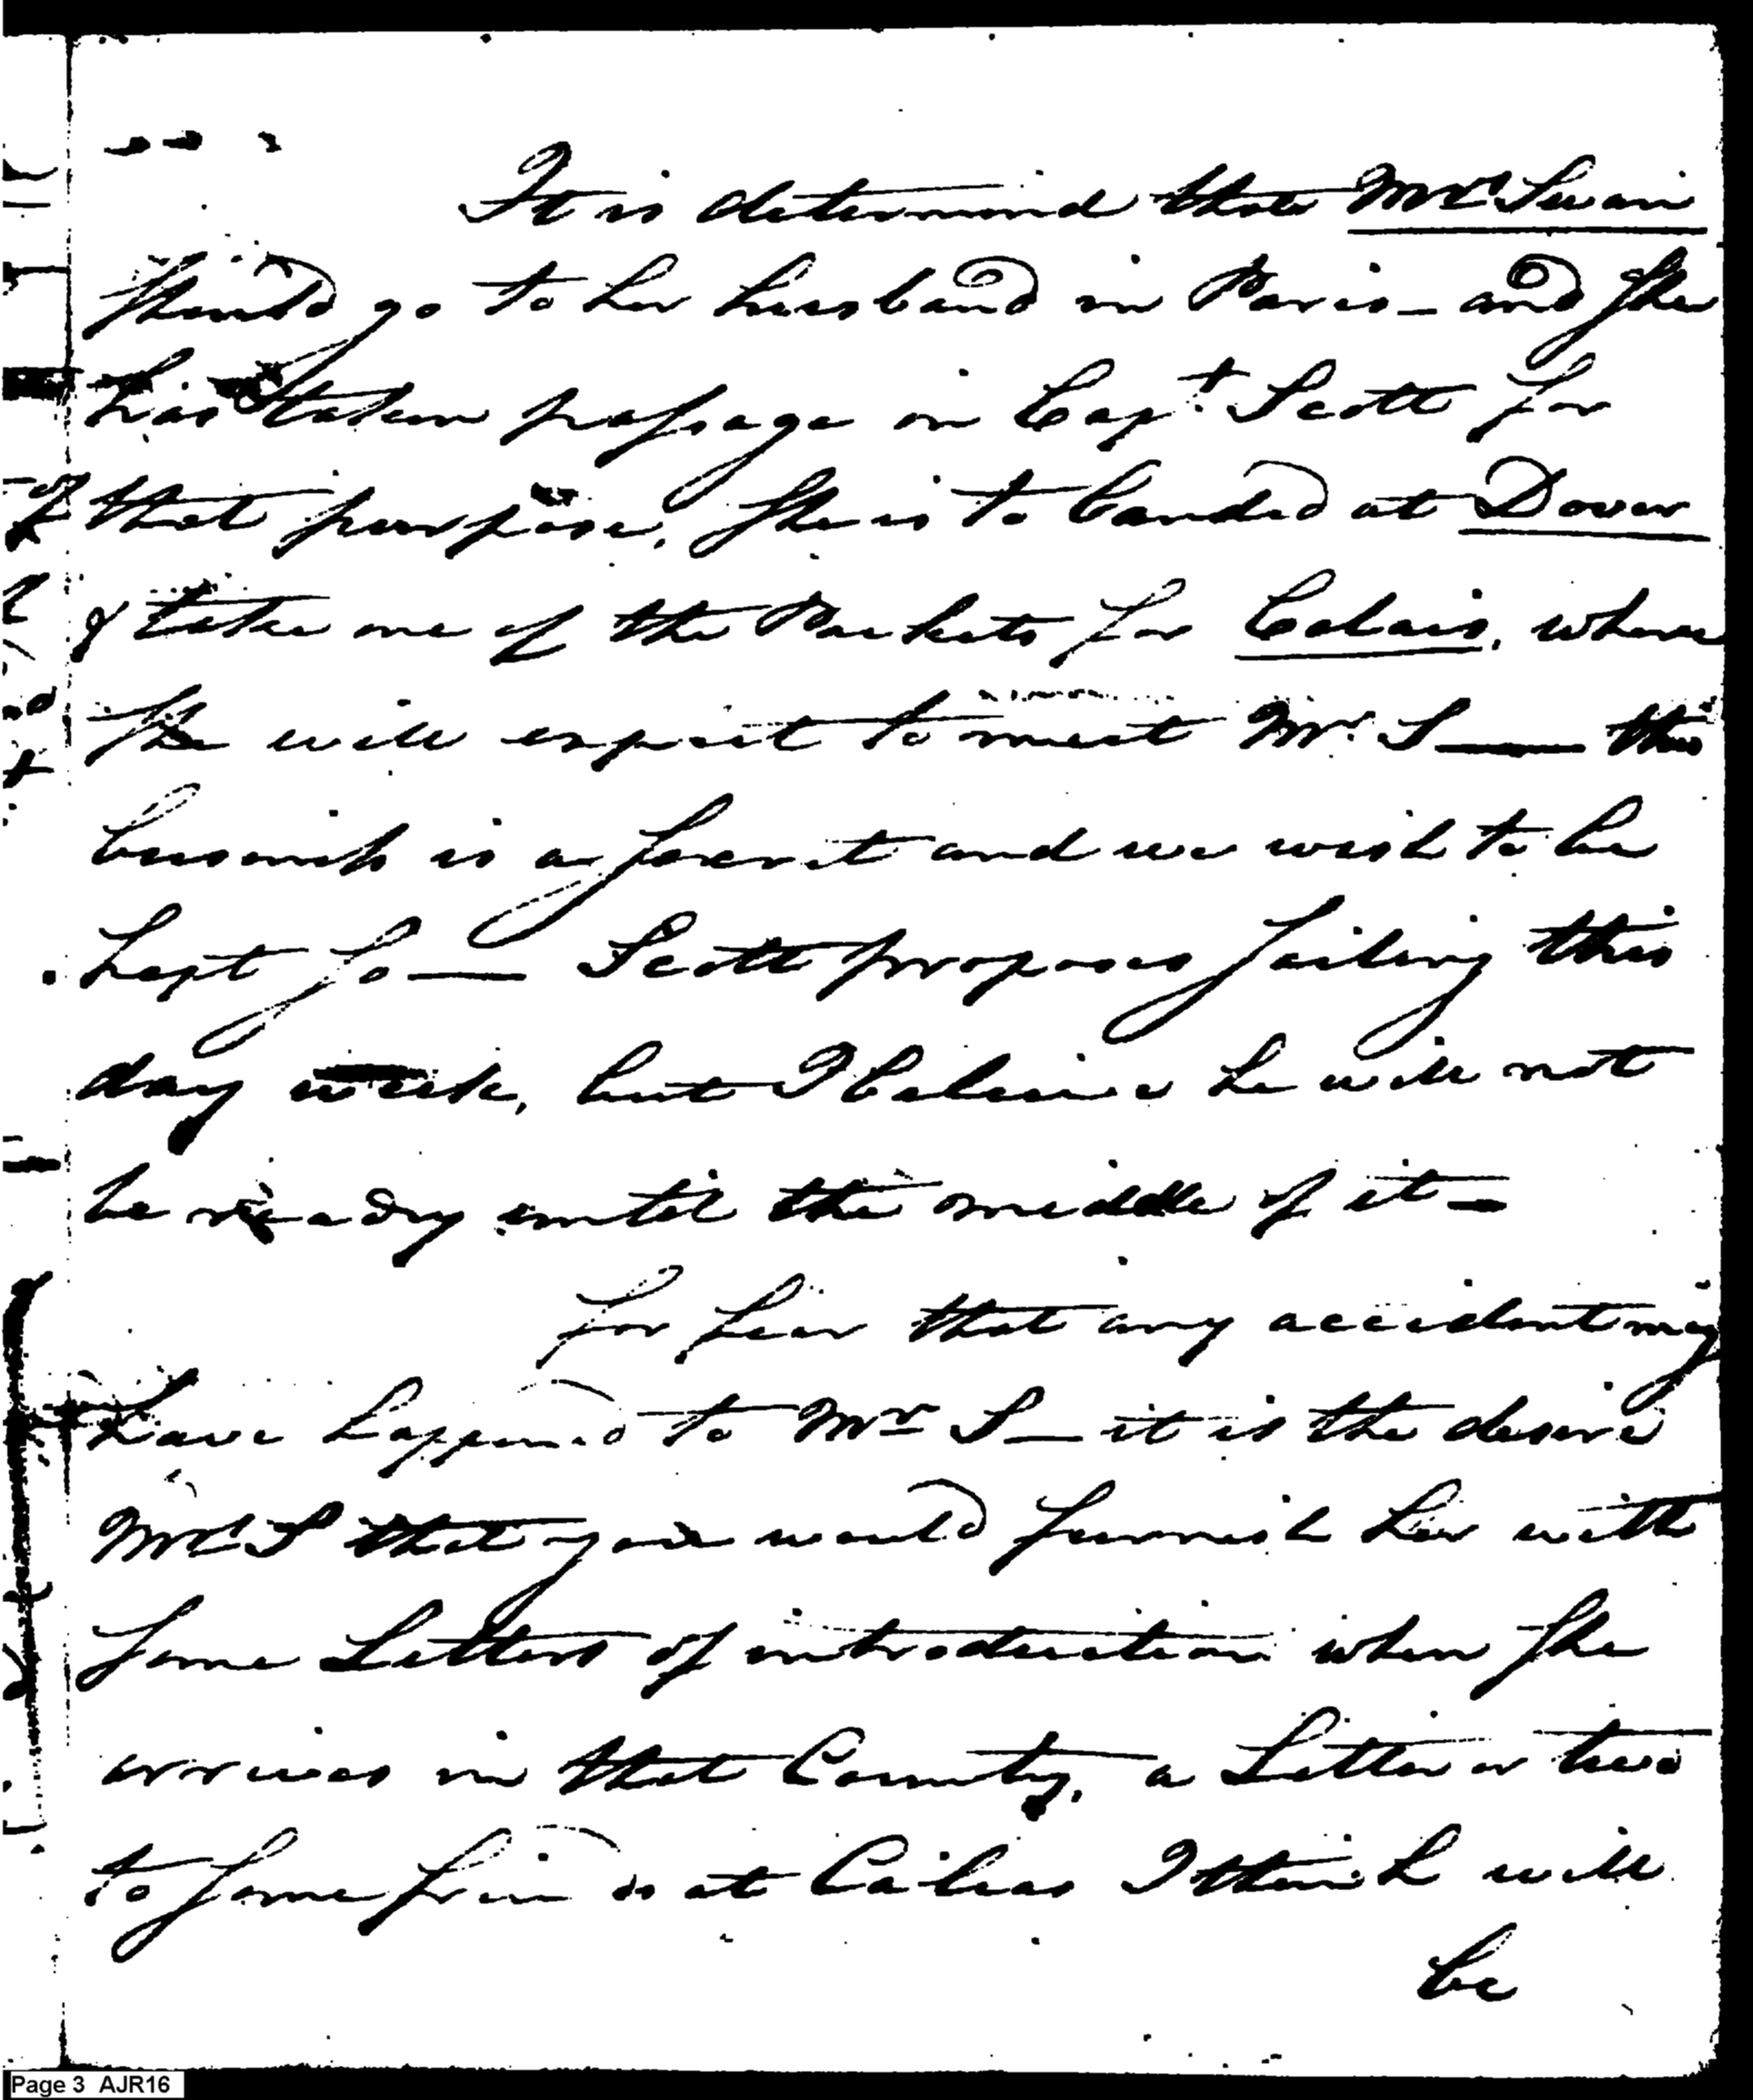 It is determined that Mrs Swan
should go to her husband in Paris – and she
has taken passage in Capt. Scott for
that purpose, she is to landed at Dover
& take one of the Packets for Calais, where
she will expect to meet Mr. S—— this
business is a secret and we wish to be
kept so —— Scott proposes sailing this
day week, but I believe he will not
be ready until the middle of it –
for fear that any accident may
have happened to Mr S— it is the desire
Mrs S that you would furnish her with
some Letters of introduction when she
arrives in that County, a Letter or two
to some friends at Calias I think will
be
Page 3 AJR16